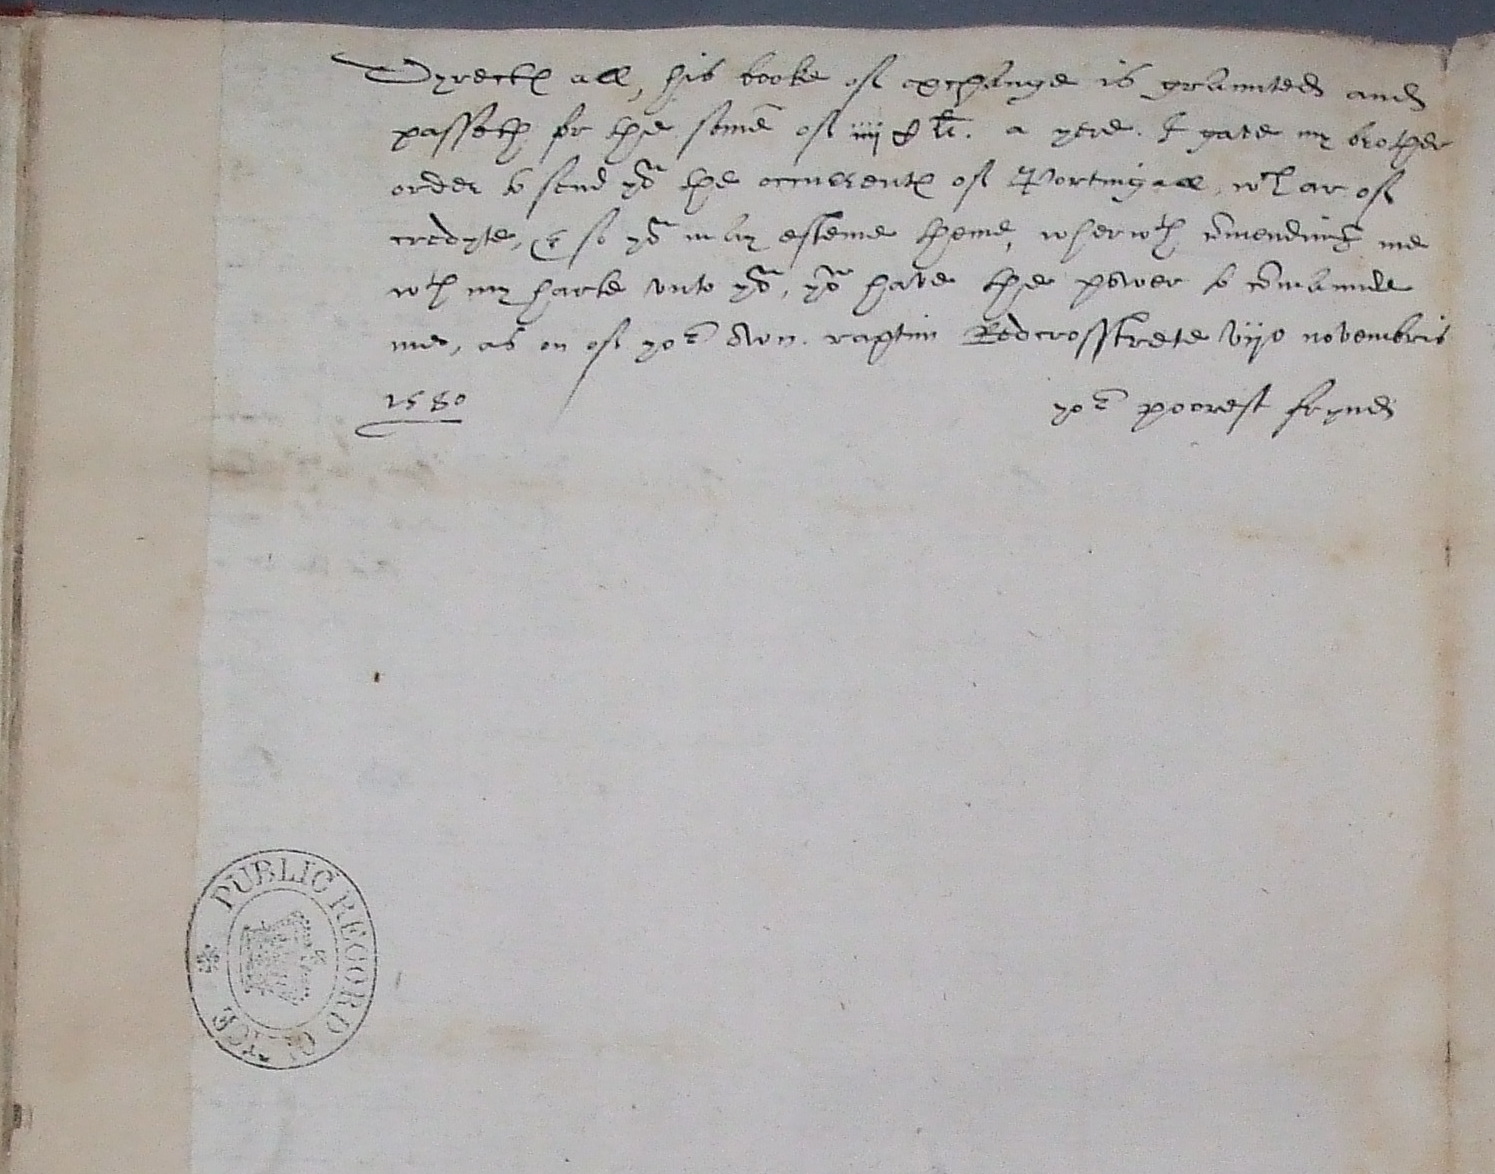 Dyrectly all, his booke of exchange is graunted and
passeth for the some of iiij C li. a yere. I gave my brother
order to send yow the occurrents of Portingall, wch ar of
credyte, & so yow may esteme theme, wherwth comending me
wth my harte unto yow, yow have the power to comaunde
me, as on of yor own. raptim Redcrosstrete vijo novembris
1580
yor poorest frynd
PUBLIC RECORD OFFICE